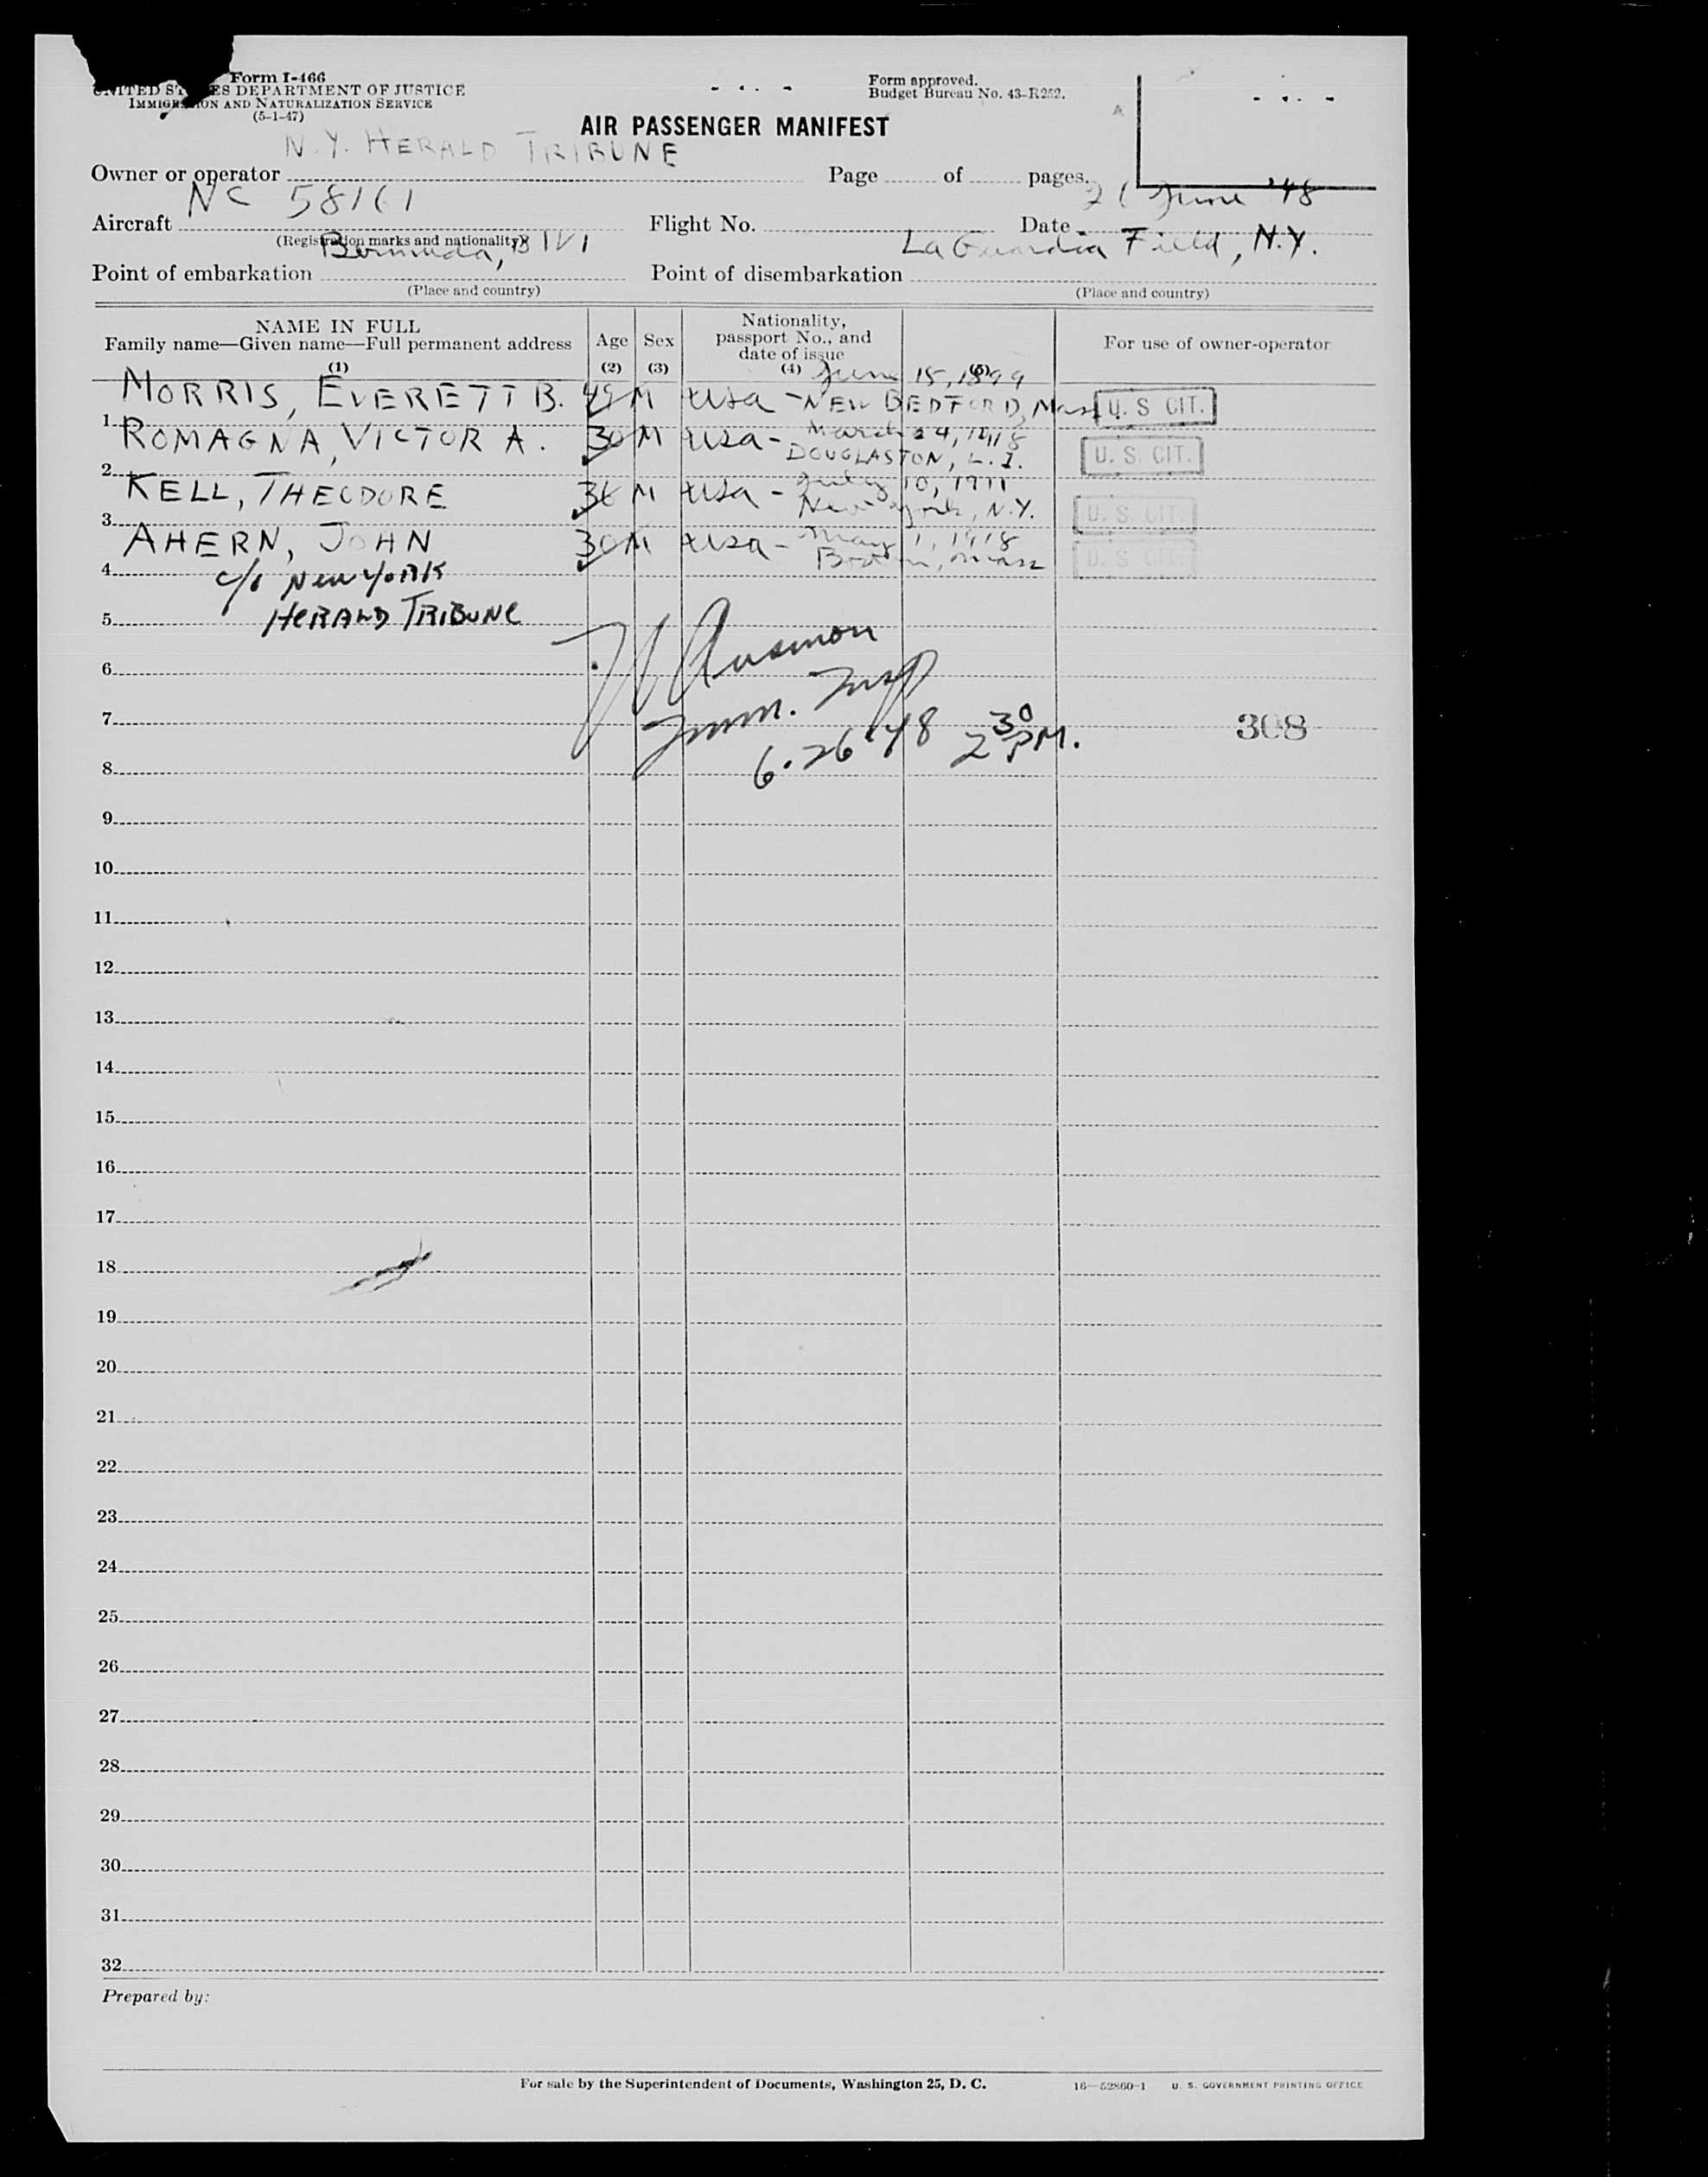 Form I-466
UNITED STATES DEPARTMENT OF JUSTICE
IMMIGRATION AND NATURALIZATION SERVICE
(5-1-47)
Form approved.
Budget Bureau No. 43-R252.
AIR PASSENGER MANIFEST
N.Y. HERALD TRIBUNE
Owner or operator
Page of pages.
NC 58161
26 June '48
Aircraft Flight No. Date
(Registration marks and nationality)
Bermuda, BWI La Guardia Field, N.Y.
Point of embarkation Point of disembarkation
(Place and country) (Place and country)
NAME IN FULL
Family name—Given name—Full permanent address
(1)
Age
(2)
Sex
(3)
Nationality, passport No., and date of issue
(4)
(5)
For use of owner-operator
June 15, 1899
MORRIS, EVERETT B. 49 M USA - NEW BEDFORD, Mass U. S CIT.
1
ROMAGNA, VICTOR A. 30 M USA - March 24, 1918
DOUGLASTON, L.I. U. S. CIT.
2
KELL, THEODORE 36 M USA - July 10, 1911
New York, N.Y. U. S. CIT.
3
AHERN, JOHN 30 M USA - May 1, 1918
Boston, Mass U. S. CIT.
4
c/o New YORK
5 HERALD TRIBUNE
6
Imm. Insp
7 308
6-26-48 2 30 PM.
8
9
10
11
12
13
14
15
16
17
18
19
20
21
22
23
24
25
26
27
28
29
30
31
32
Prepared by:
For sale by the Superintendent of Documents, Washington 25, D. C. 16—52860-1 U. S. GOVERNMENT PRINTING OFFICE